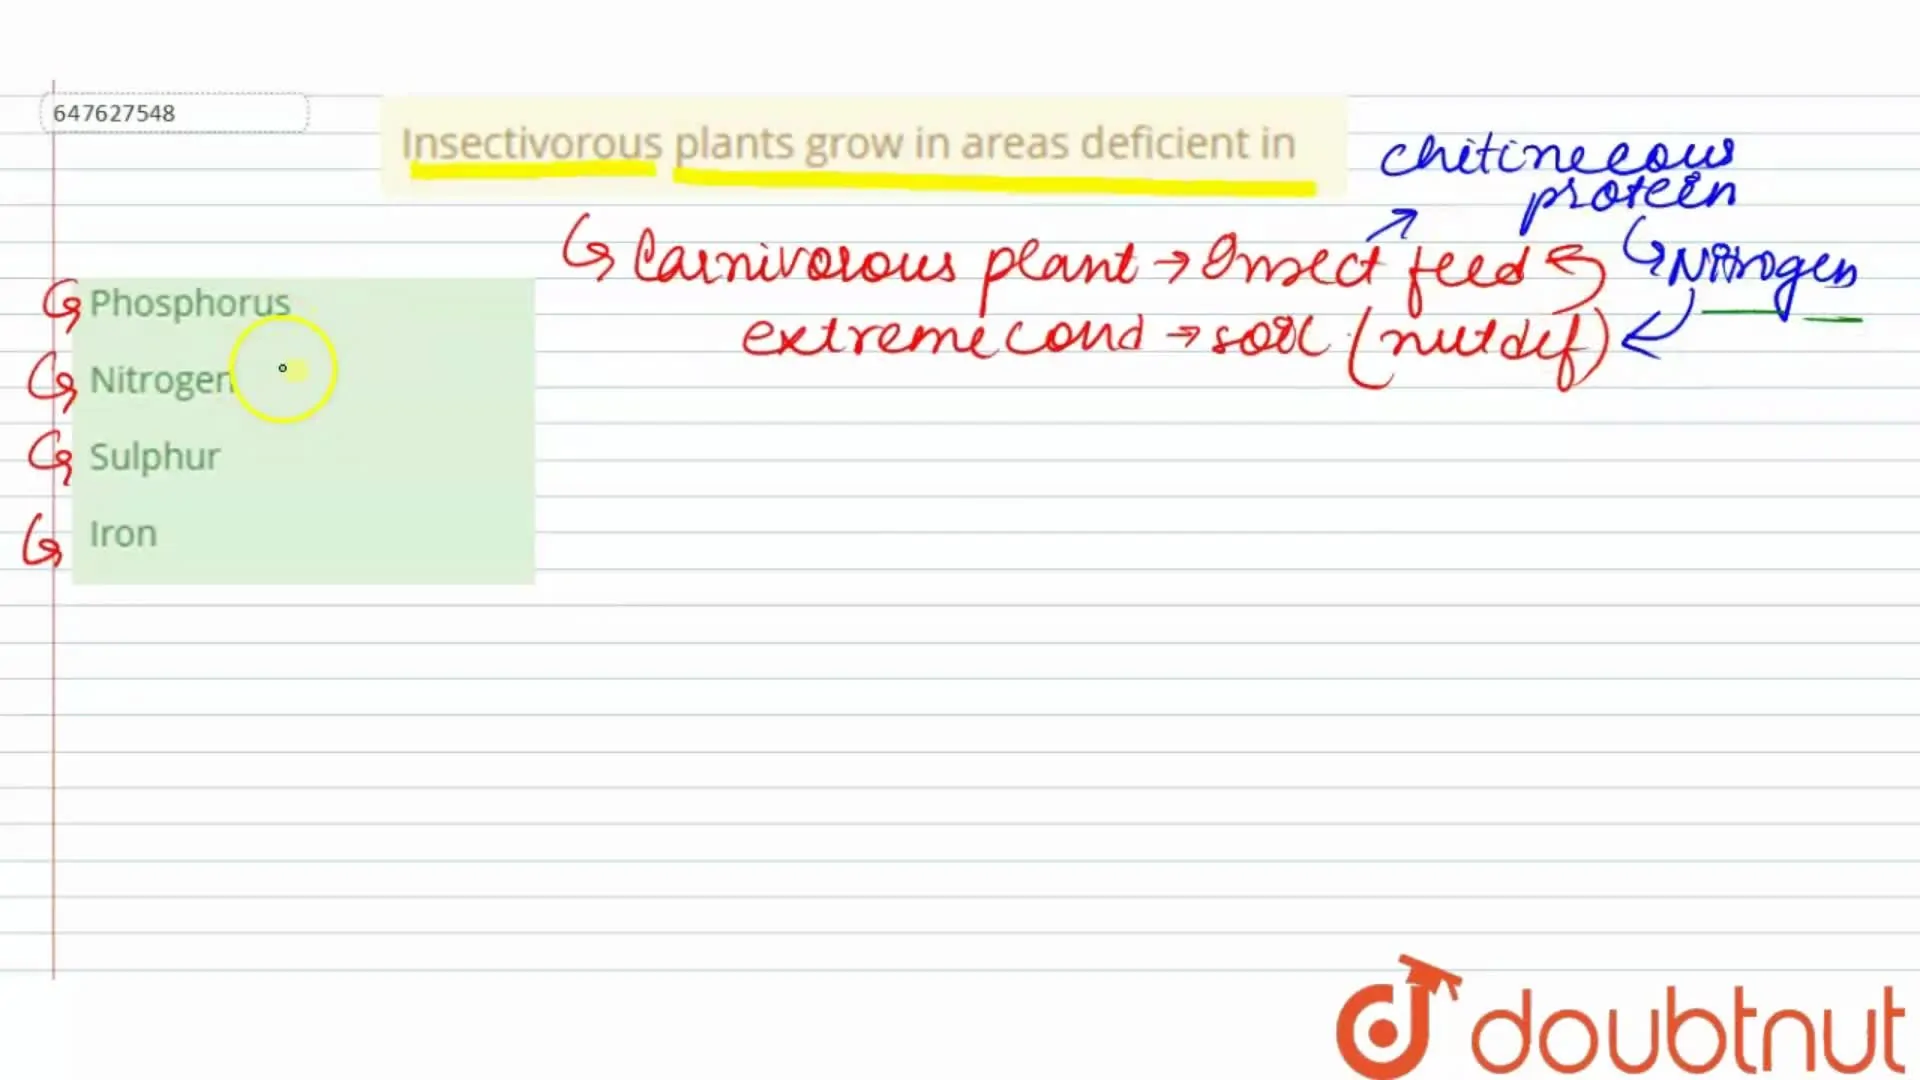 647627548
Insectivorous plants grow in areas deficient in
chitineous
protein
Nitrogen
Carnivorous plant → Insect feed
extreme cond → soil (nut def)
Phosphorus
Nitrogen
Sulphur
Iron
doubtnut